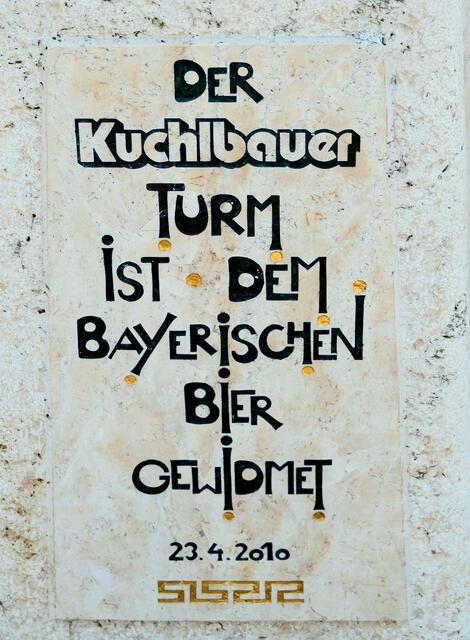 DER
Kuchlbauer
TURM
iST DEM
BAYERiSCHEN
BiER
GEWiDMET
23.4.2010